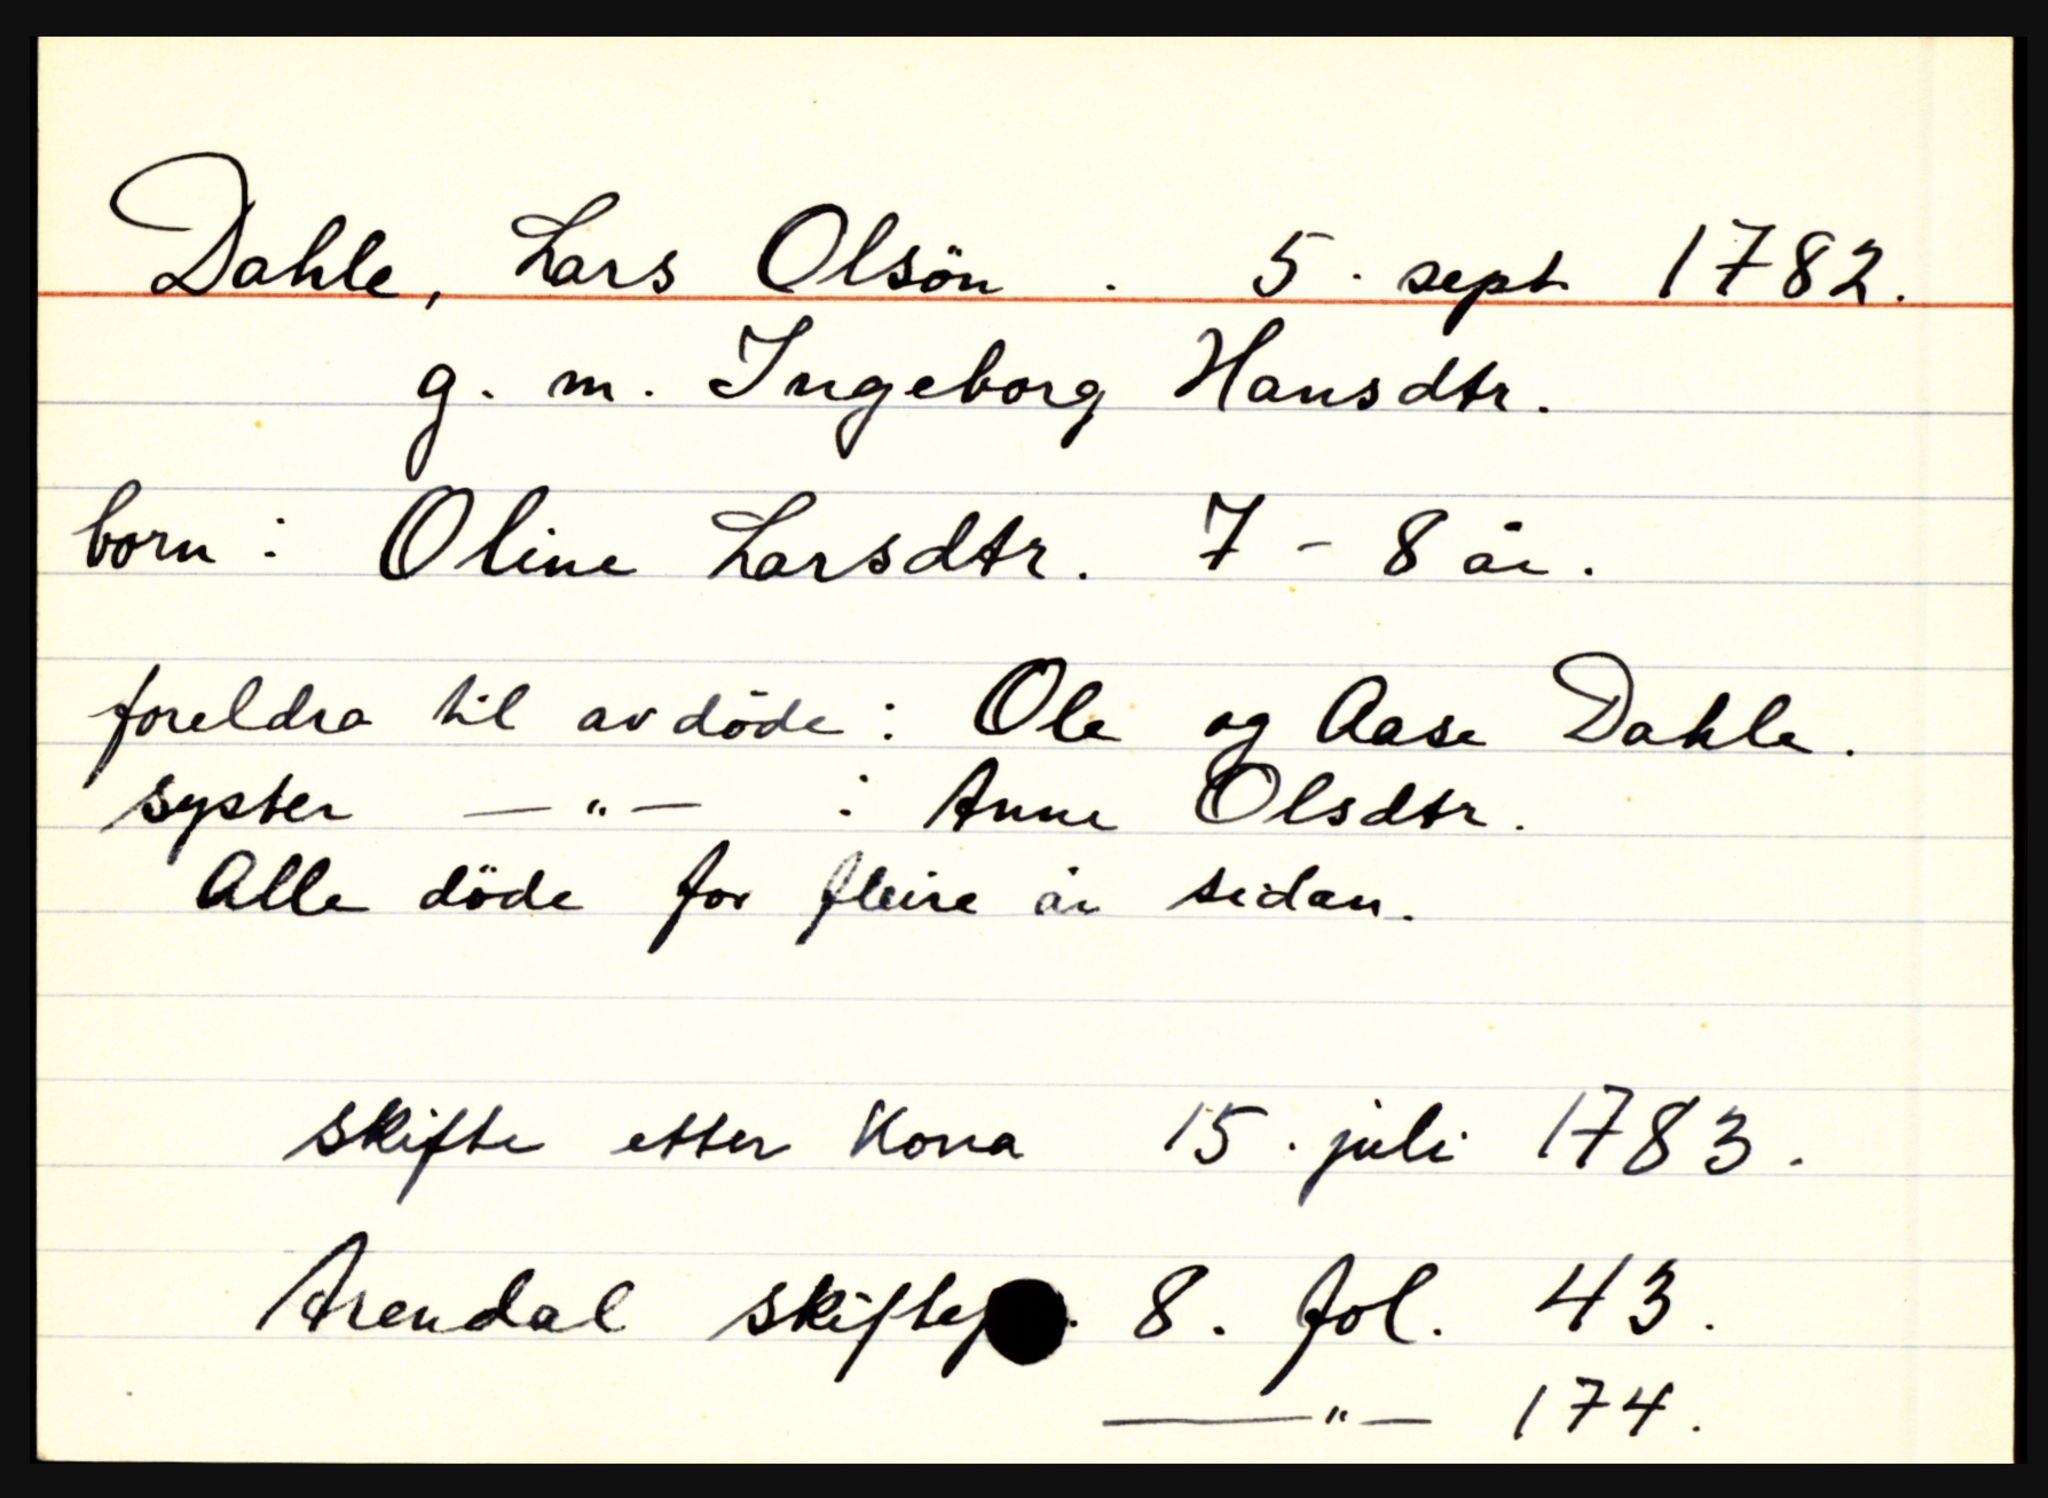 Dahle, Lars Olsön . 5. sept 1782.
g. m. Ingeborg Hansdtr.
born : Oline Larsdtr. 7 - 8 år.
foreldra til avdöde : Ole og Aase Dahle.
syster — " — : Anne Olsdtr.
Alle döde for fleire år sidan.
skifte etter Kona 15. juli 1783.
Arendal 8. fol. 43.
— " — 174.